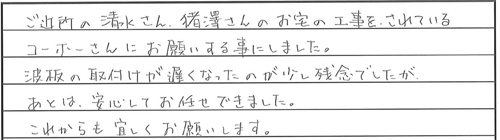 ご近所の清水さん、猪澤さんのお宅の工事をされている
コーボーさんにお願いする事にしました。
波板の取付けが遅くなったのが少し残念でしたが、
あとは、安心してお任せできました。
これからも宜しくお願いします。